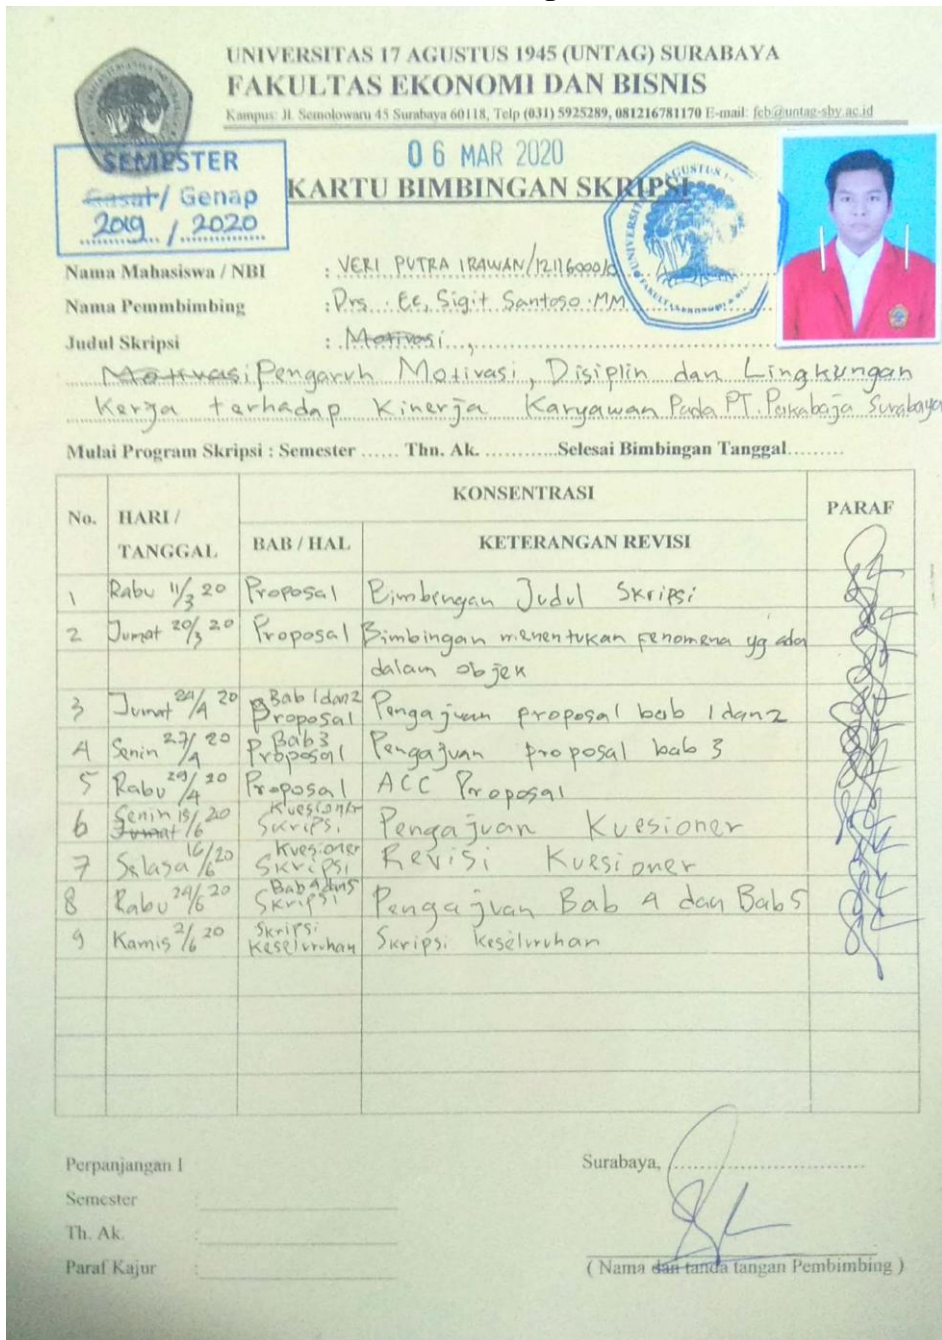 UNIVERSITAS 17 AGUSTUS 1945 (UNTAG) SURABAYA
FAKULTAS EKONOMI DAN BISNIS
Kampus: Jl. Semolowaru 45 Surabaya 60118, Telp (031) 5925289, 081216781170 E-mail: feb@untag-sby.ac.id
SEMESTER
Gasal / Genap
2019 / 2020
06 MAR 2020
KARTU BIMBINGAN SKRIPSI
Nama Mahasiswa / NBI : VERI PUTRA IRAWAN/
Nama Pemmbimbing : Drs. Ec, Sigit Santoso MM
Judul Skripsi : Motivasi
Motivasi Pengaruh Motivasi, Disiplin dan Lingkungan
Kerja terhadap Kinerja Karyawan Pada PT. Surabaya
Mulai Program Skripsi : Semester ...... Thn. Ak. ............Selesai Bimbingan Tanggal.........
No. HARI / TANGGAL KONSENTRASI PARAF
BAB / HAL KETERANGAN REVISI
1 Rabu 11/3 20 Proposal Bimbingan Judul Skripsi
2 Jumat 20/3 20 Proposal Bimbingan menentukan fenomena yg ada
dalam objek
3 Jumat 24/4 20 Bab 1 dan 2 Proposal Pengajuan proposal bab 1 dan 2
4 Senin 27/4 20 Bab 3 Proposal Pengajuan proposal bab 3
5 Rabu 29/4 20 Proposal ACC Proposal
6 Senin Jumat 15/6 20 Kuesioner Skripsi Pengajuan Kuesioner
7 Selasa 16/6 20 Kuesioner Skripsi Revisi Kuesioner
8 Rabu 24/6 20 Bab 4 dan 5 Skripsi Pengajuan Bab 4 dan Bab 5
9 Kamis 2/6 20 Skripsi Keseluruhan Skripsi keseluruhan
Perpanjangan I
Surabaya, ..............................
Semester :
Th. Ak. :
Paraf Kajur :
( Nama dan tanda tangan Pembimbing )